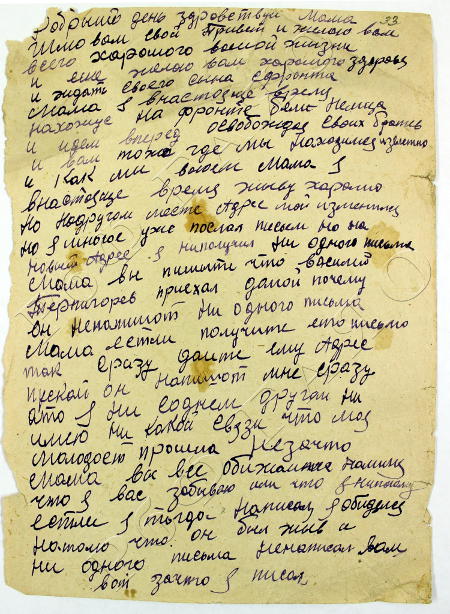 Добрый день здровствуй Мама 33
Шлю вам свой Привет и желаю вам
всего харошого ввашой жизни
и еще желаю вам харошого здаровья
и ждать своего сына сфронта
Мама я внастояще время
нахожус на фронте бем Немца
и идем вперед освобождая своих братьев
и вам тожа где мы находимся известно
и как мы воюем Мама я
внастояще время живу харашо
но надругом месте Адрес мой изменился
но я многое уже послал писем но на
новый Адрес я ниполучил ни одного письма
Мама вы пишите что василий
Тернигорев приехал дамой почему
он ненапишот ни одного письма
Мама естли получите ето письмо
так сразу дайте ему Адрес
пускай он напишот мне сразу
ато я ни содним другом ни
имею ни какой связи что моя
Молодост прошла незачто
Мама вы все обижаитес намина
что я вас забываю или что я нипишу
естли я тогда написал я обиделся
натото что он был жив и
ни одного письма ненаписал вам
вот зачто я писал